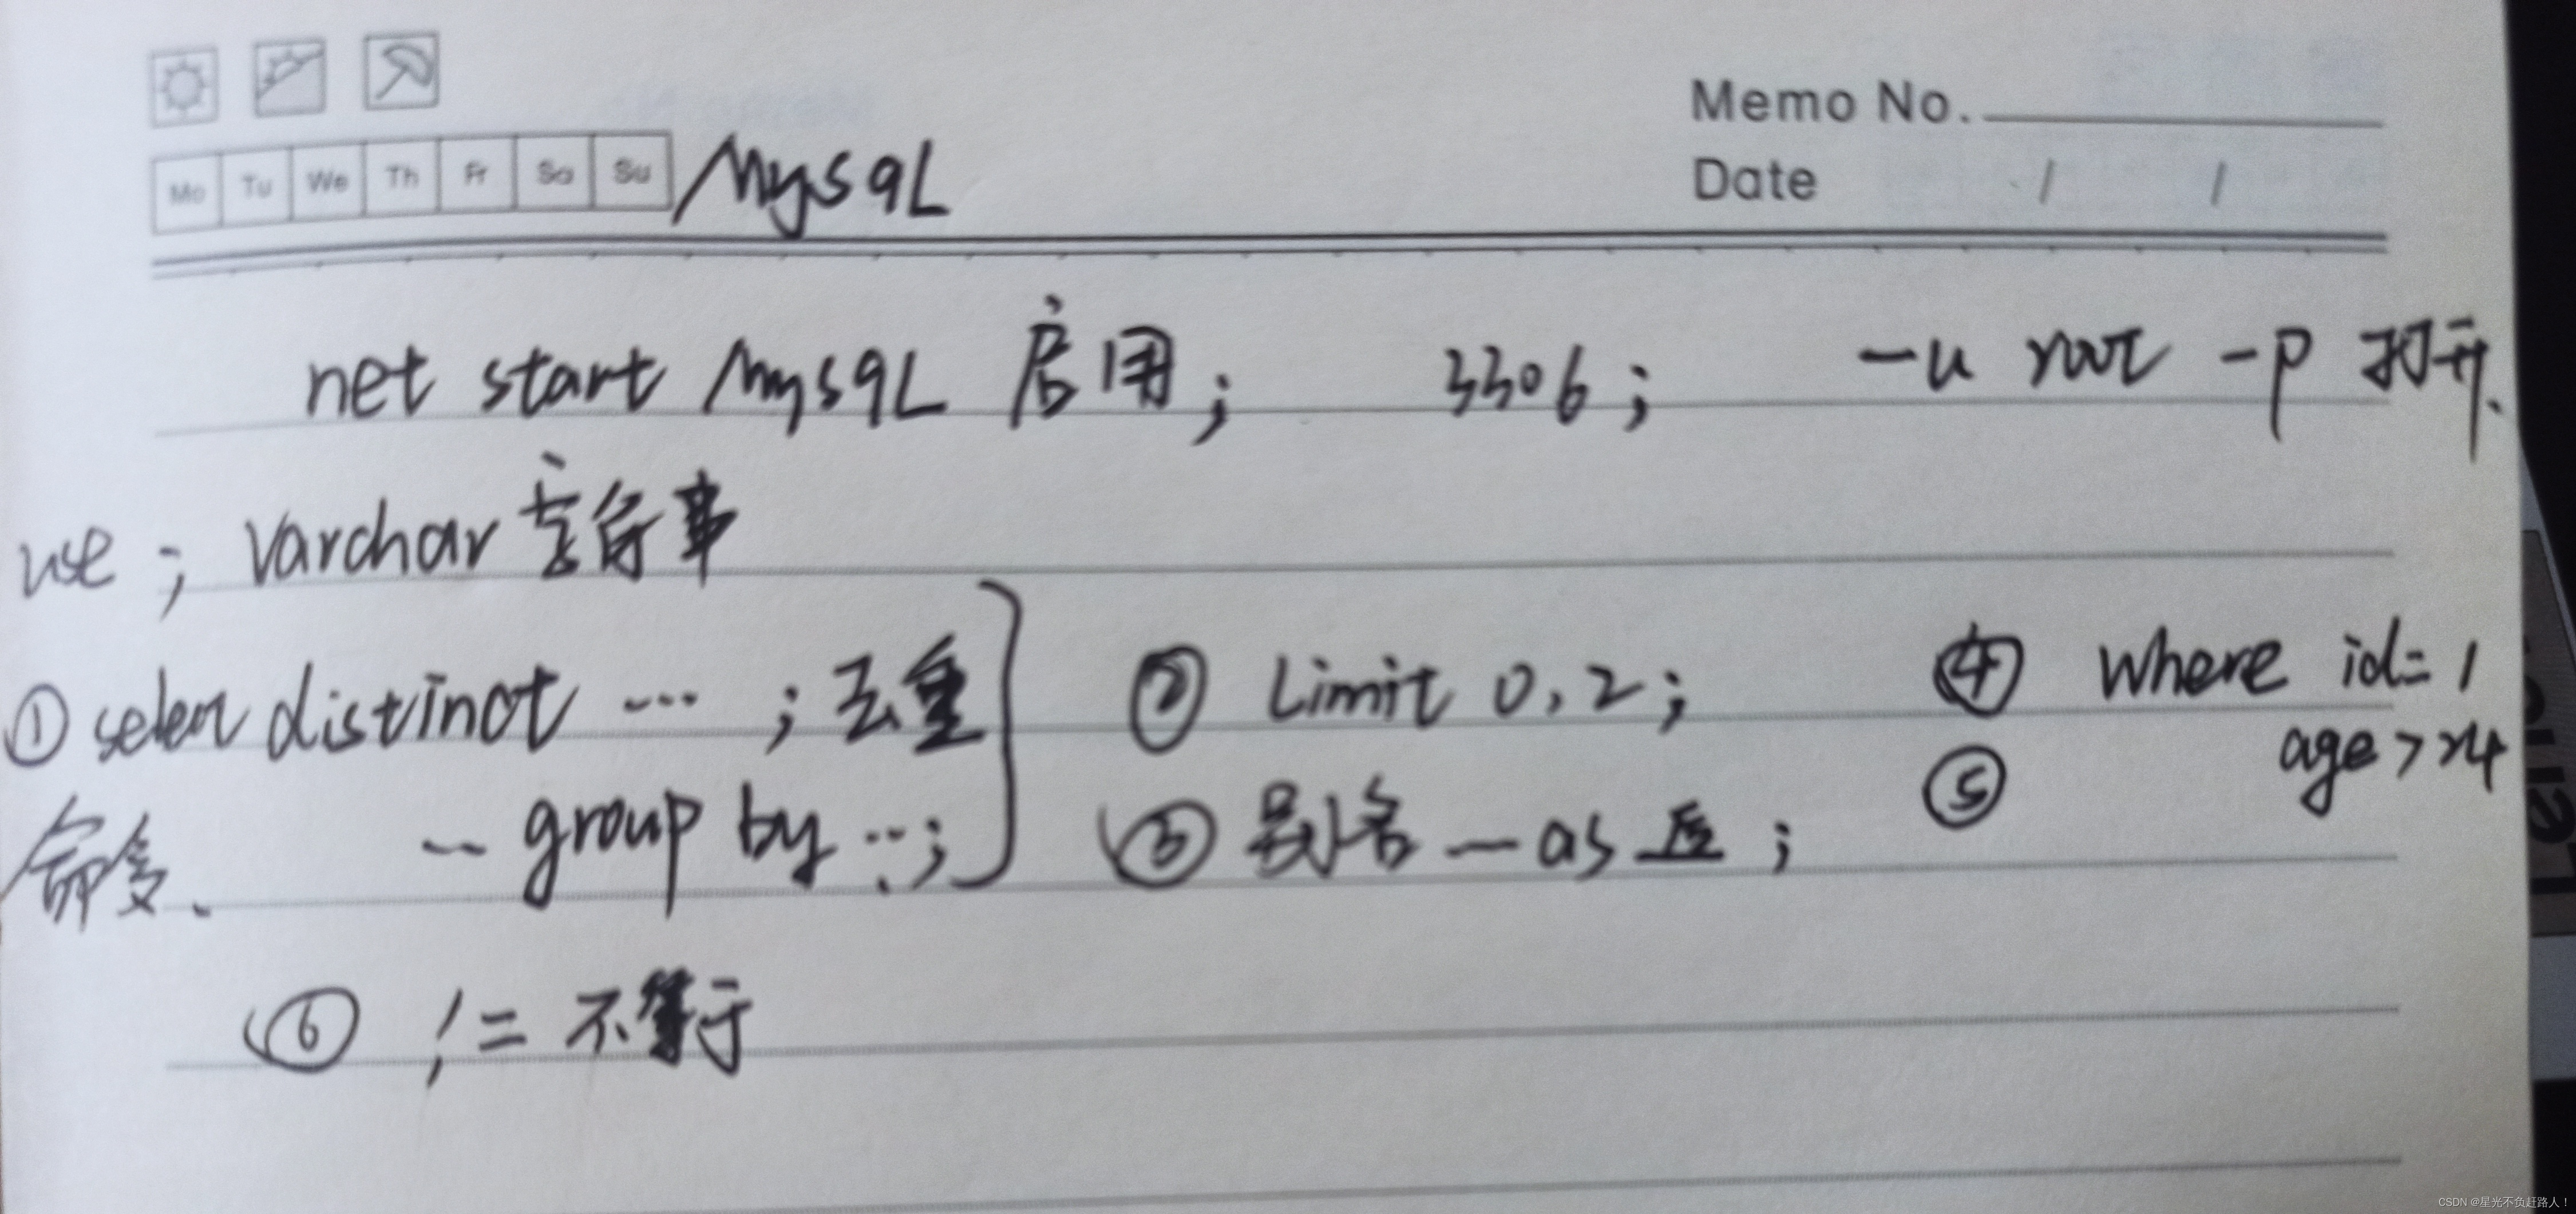 Memo No.
Mo Tu We Th Fr Sa Su MysqL
Date / /
net start MysqL 启用; 3306; -u root -p 打开.
use; varchar 字符串
① select distinct ... ; 去重
② Limit 0,2;
④ where id=1
age>24
... group by ...;
③ 别名 — as 后;
⑤
⑥ != 不等于
CSDN @星光不负赶路人!